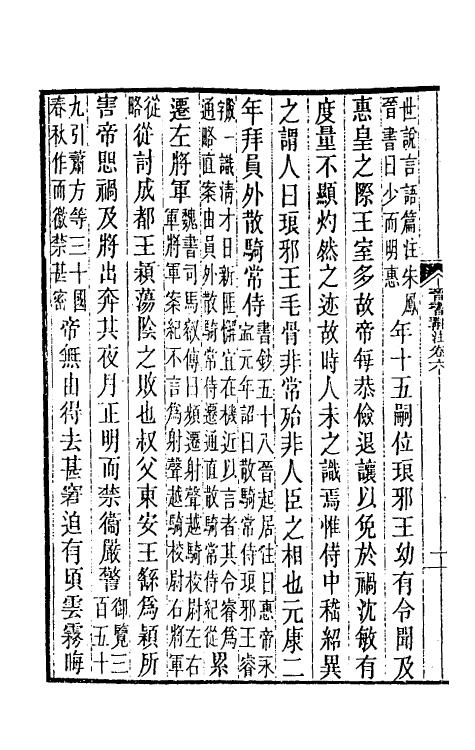 晉書斠注卷六
世說言語篇注朱鳳
晉書曰少而明惠
年十五嗣位琅邪王幼有令聞及
惠皇之際王室多故帝每恭儉退讓以免於禍沈敏有
度量不顯灼然之迹故時人未之識焉惟侍中嵇紹異
之謂人曰琅邪王毛骨非常殆非人臣之相也元康二
年拜員外散騎常侍
書鈔五十八晉起居注曰惠帝永
寍元年詔曰散騎常侍琅邪王睿
一識清才日新匪懈宜在機近以言者其令睿爲
通略直案由員外散騎常侍遷通直散騎常侍紀從
累
遷左將軍
魏書司馬叡傳曰頻遷射聲越騎校尉左右
軍將軍案紀不言爲射聲越騎校尉右將軍
從
略
從討成都王穎蕩陰之敗也叔父東安王繇爲穎所
害帝愳禍及將出奔其夜月正明而禁衞嚴警
御覽三
百五十
九引蕭方等三十國
春秋作而徼禁甚密
帝無由得去甚窘迫有頃雲霧晦